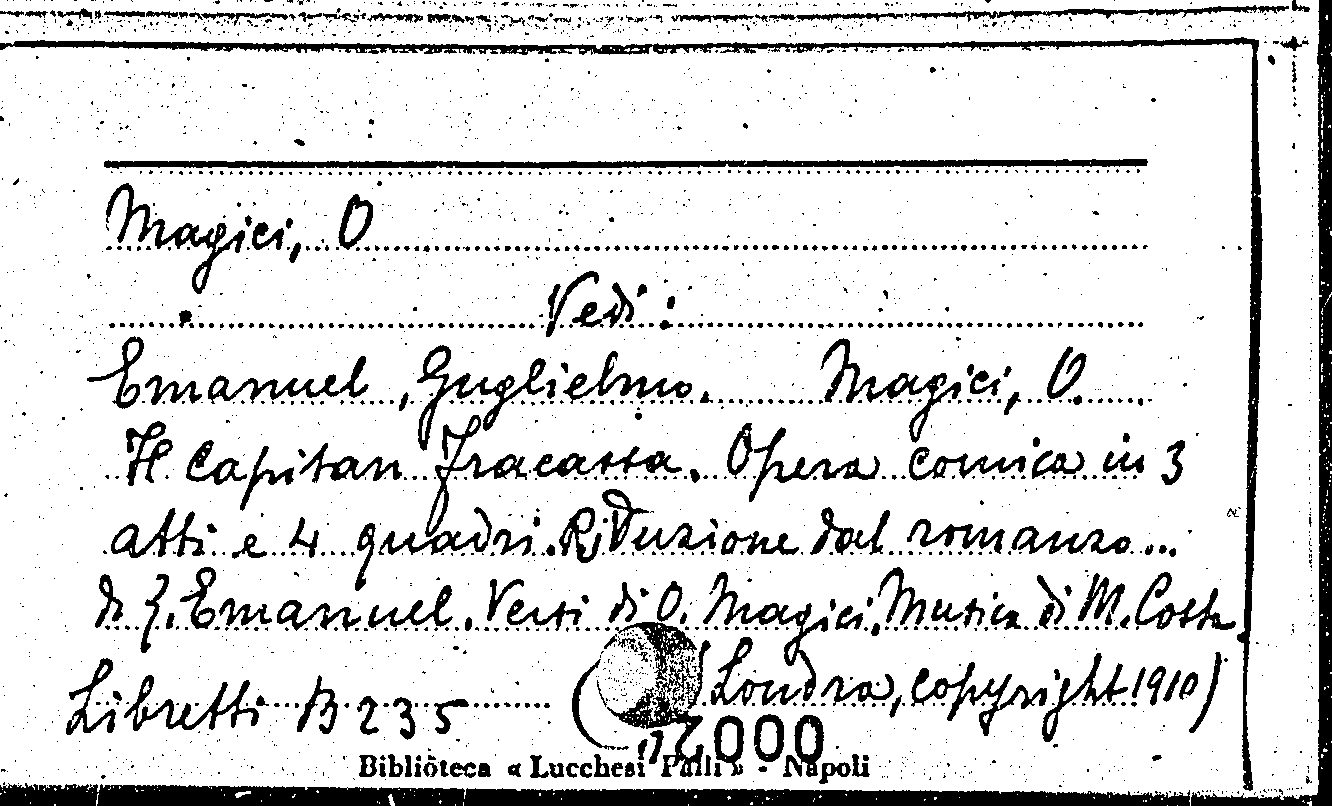 Magici, O
Vedi:
Emanuel, Guglielmo. Magici, O.
Il Capitan Fracassa. Opera comica in 3
atti e 4 quadri. Riduzione dal romanzo...
di G. Emanuel. Versi di O. Magici. Musica di M. Costa.
Libretti B 235 (Londra, copyright 1910)
Biblioteca « Lucchesi Palli » - Napoli